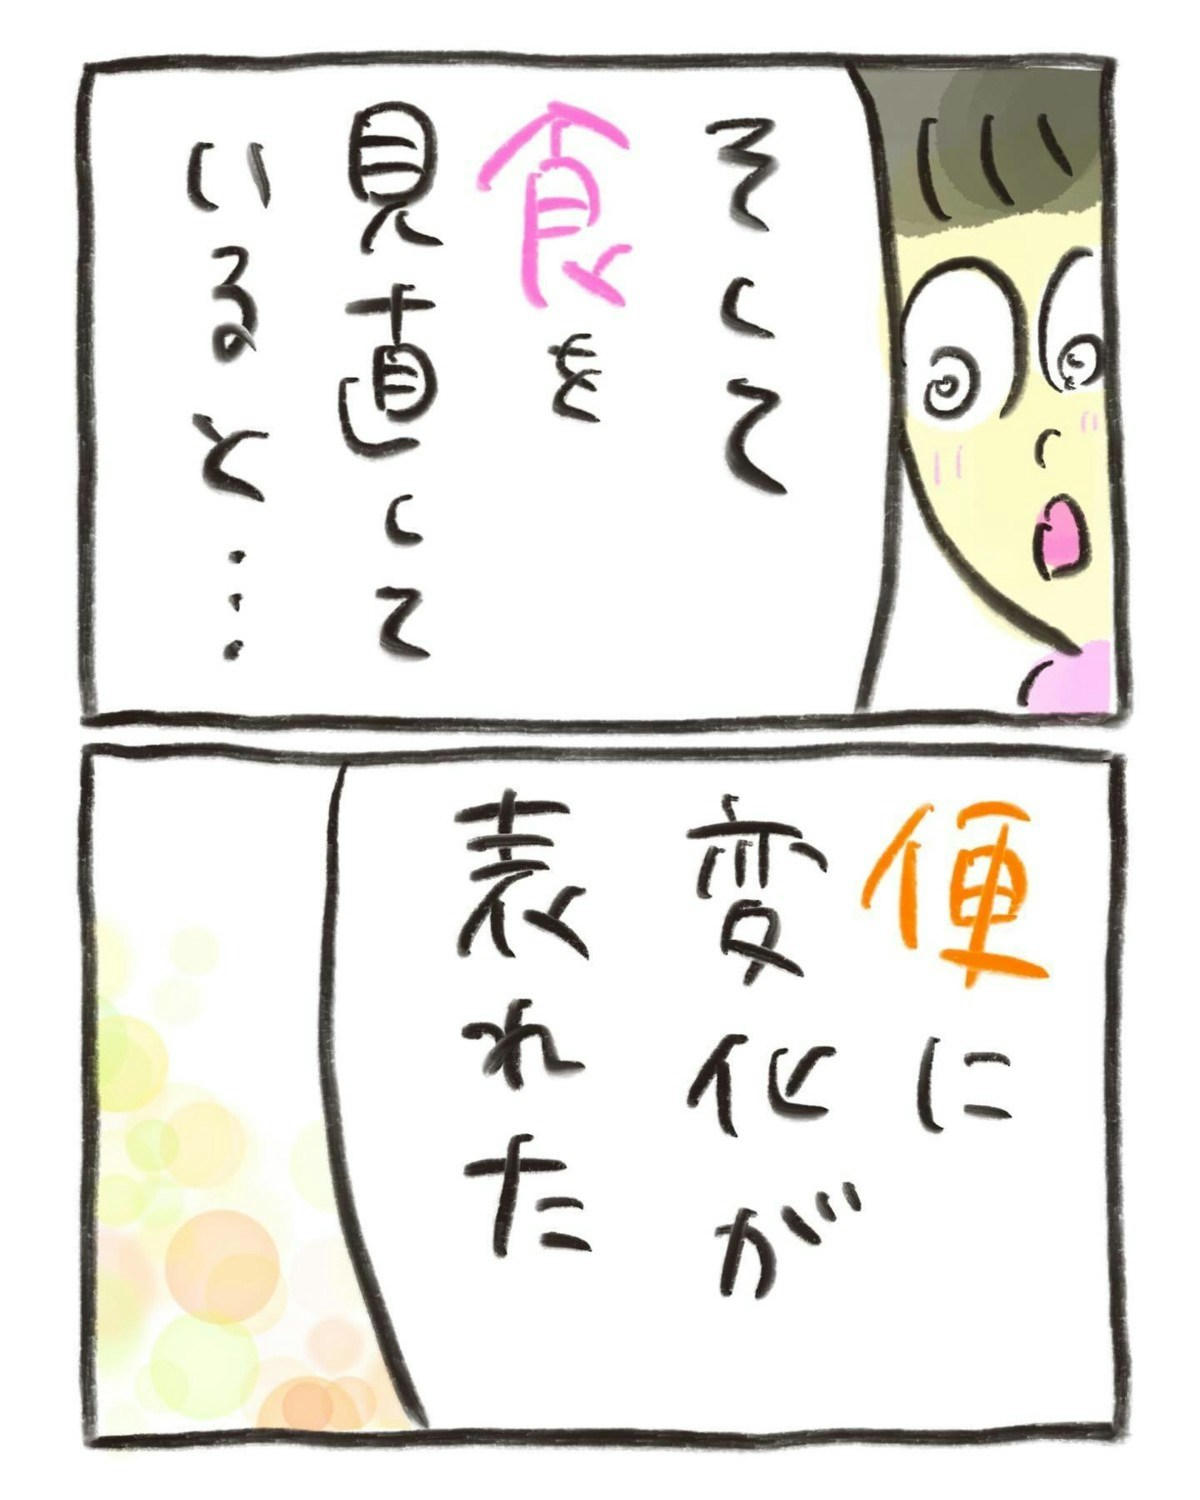 そして
食を
見直して
いると…
便に
変化が
表れた